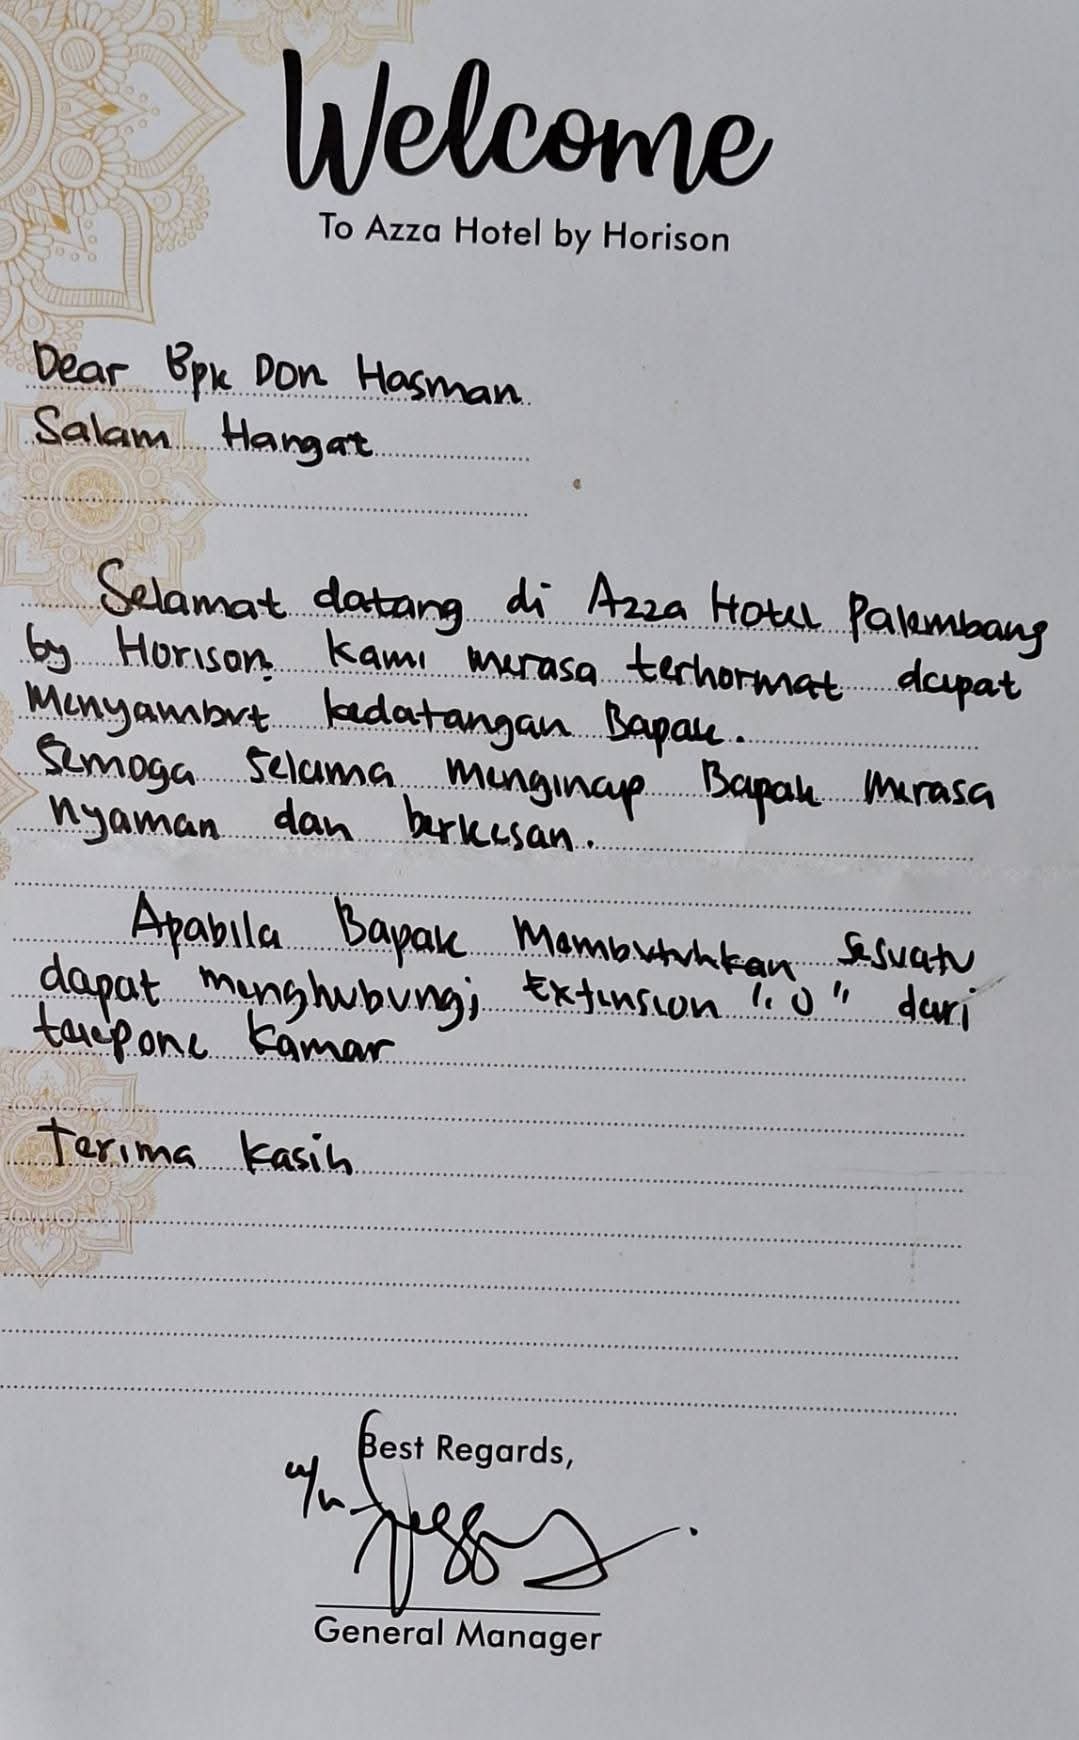 Welcome
To Azza Hotel by Horison
Dear Bpk Don Hasman
Salam Hangat
Selamat datang di Azza Hotel Palembang
by Horison. Kami merasa terhormat dapat
Menyambut kedatangan Bapak.
Semoga selama menginap Bapak merasa
nyaman dan berkesan.
Apabila Bapak Membutuhkan sesuatu
dapat menghubungi Extension "0" dari
telepone Kamar
Terima Kasih
Best Regards,
General Manager